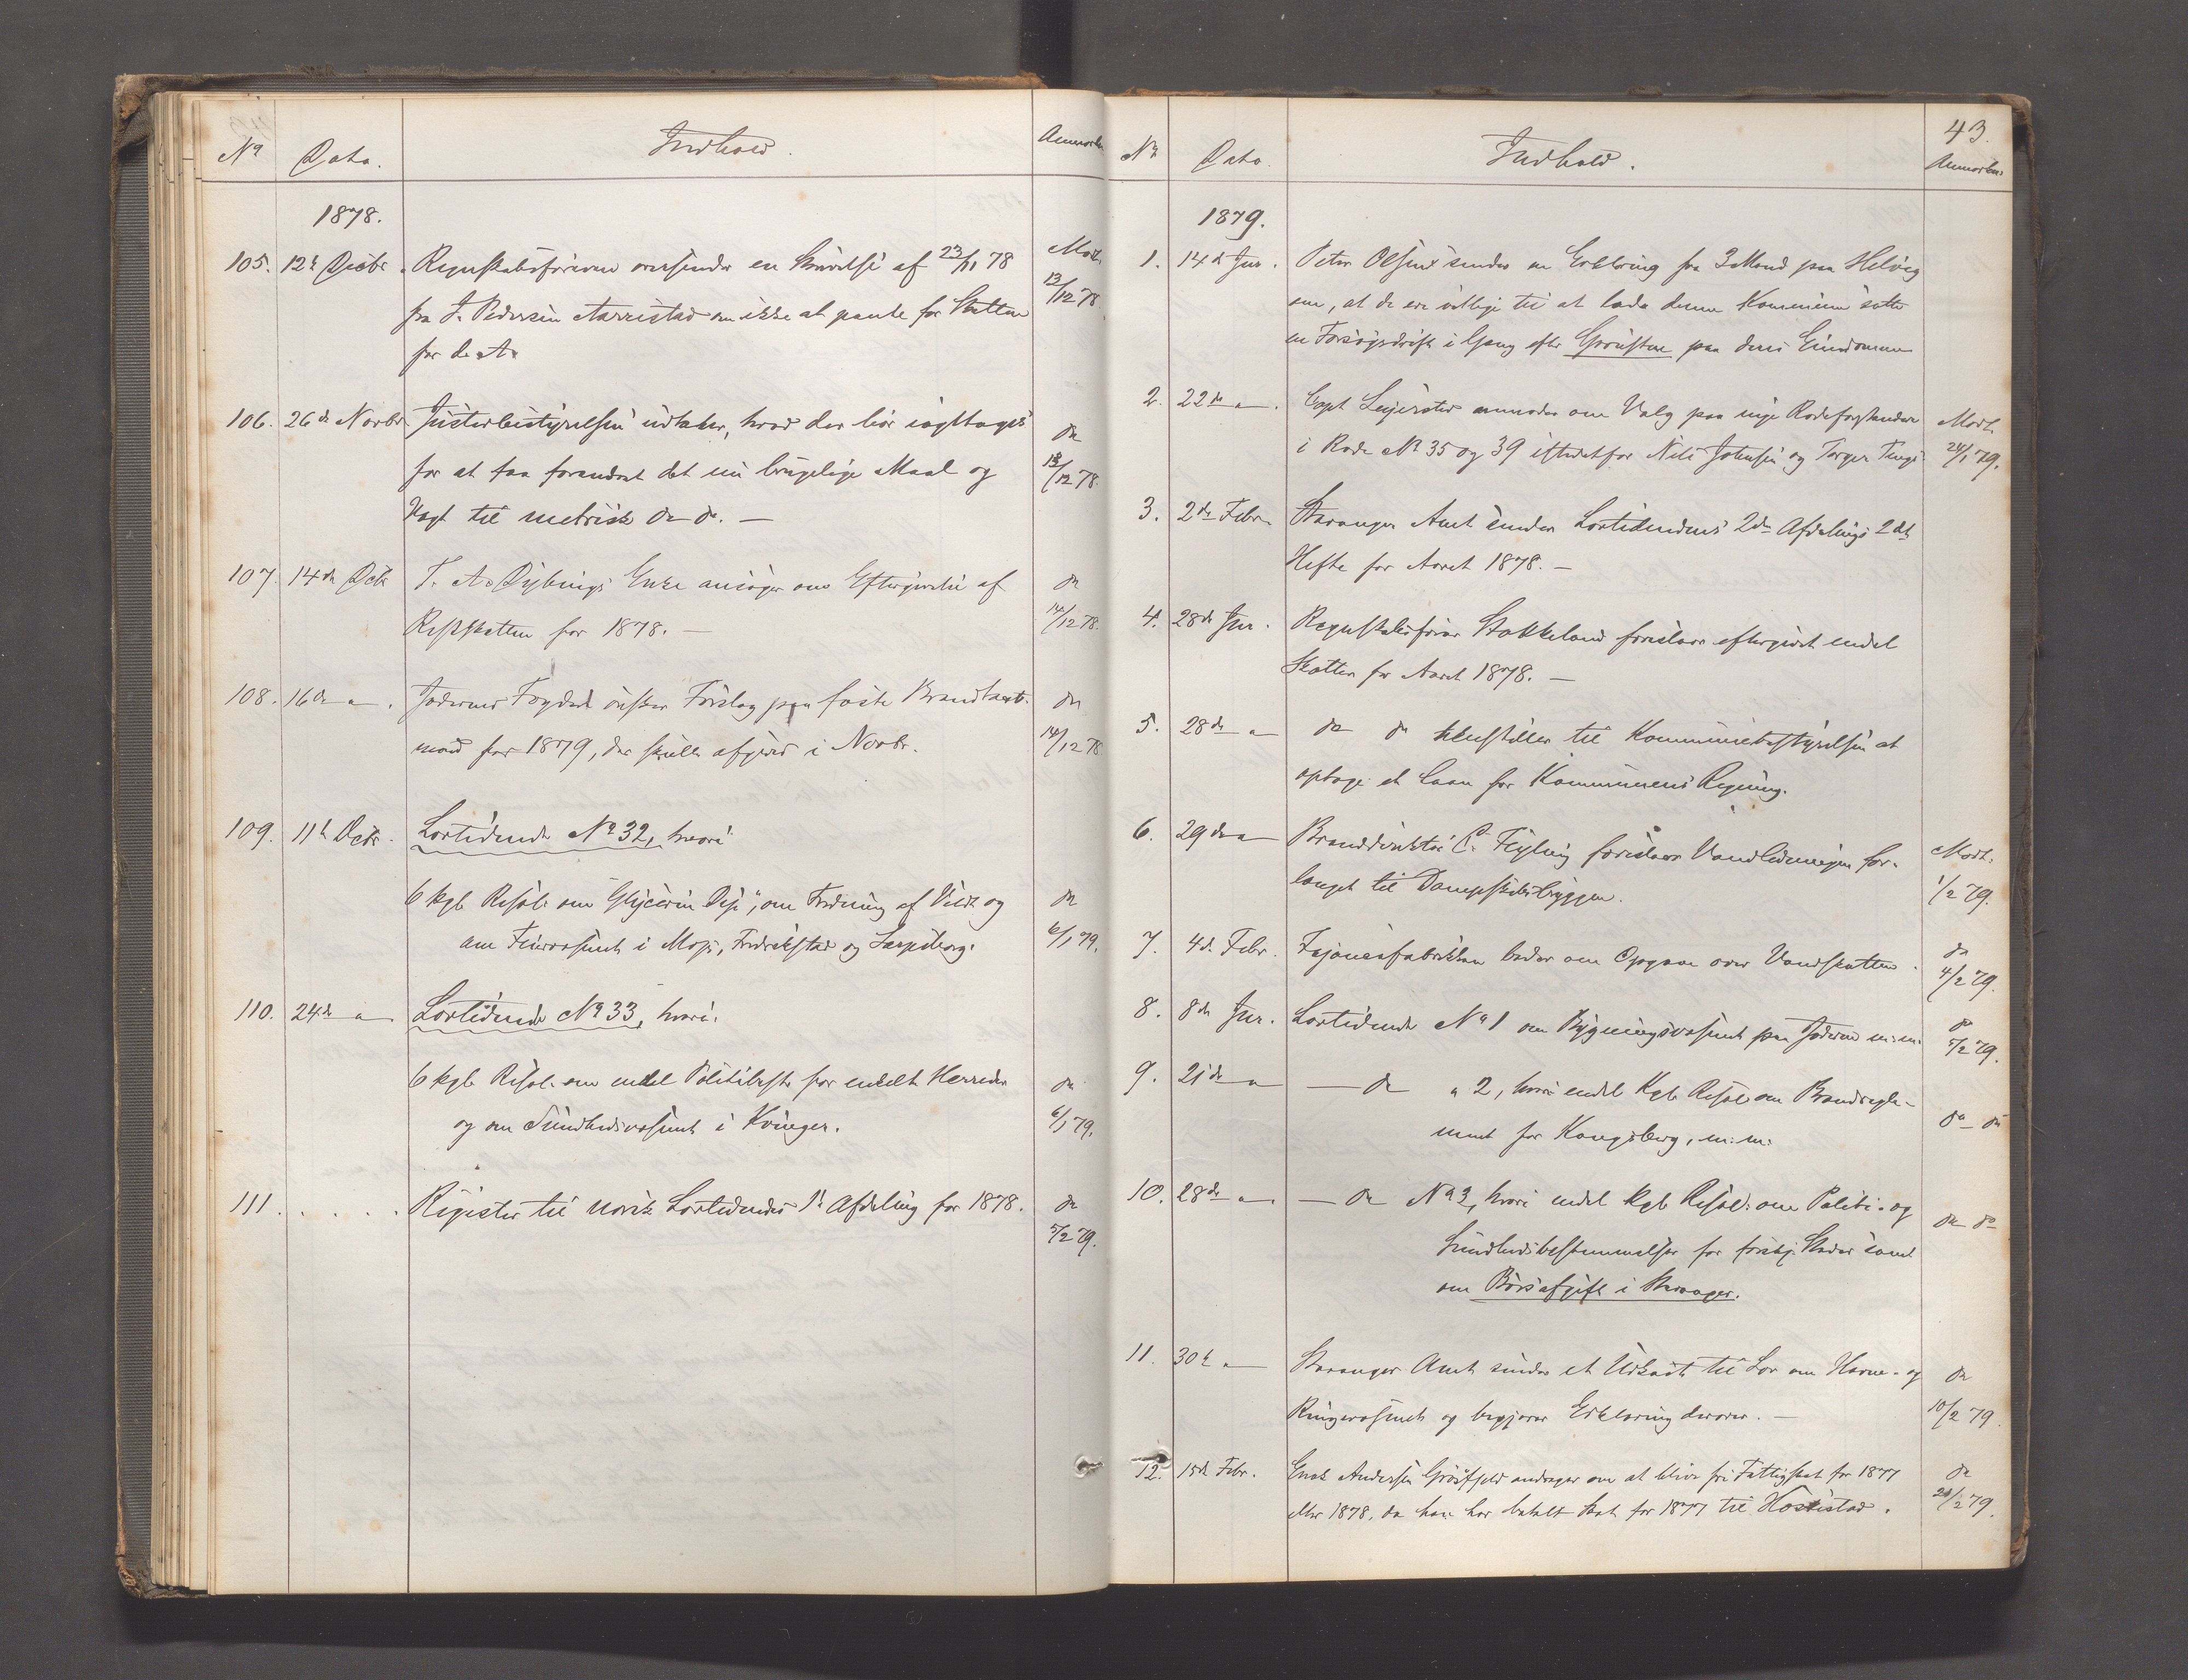 No Dato. Indhold. Anmærkn.
1878.
105. 12te Decbr. Regnskabsføreren oversender en Skrivelse af 23/11 78 Modt.
fra J. Pedersen Aarrestad om ikke at pante for Skatten 13/12 78
for d. A.
106. 26de Novbr. Justerbestyrelsen udtaler, hvad der bør iagttages do
for at faa forandret det nu brugelige Maal og 13/12 78.
Vægt til metrisk do do. —
107. 14de Dcbr. T. A. Dybings Enke ansøger om Eftergivelse af do
Restskatten for 1878. — 14/12 78.
108. 16de " . Jæderens Fogderi ønsker Forslag paa faste Brandtaxt- do
mænd for 1879, der skulle afgives i Novbr. 14/12 78
109. 11te Dcbr. Lovtidende No 32, hvori
6 kgl. Resol. om "Glycerin Deji", om Fredning af Vildt og do
om Feiervæsenet i Moss, Fredrikstad og Sarpsborg. 6/1 79.
110. 24de " Lovtidende No 33, hvori:
6 kgl. Resol. om endel Politivedt. for enkelte Herreder do
og om Sundhedsvæsenet i Kvinger. 6/1 79.
111. . . . . Register til norsk Lovtidendes 1ste Afdeling for 1878. do
5/2 79.
43.
No Dato. Indhold. Anmærkn.
1879.
1. 14de Jan. Peter Olsen sender en Erklæring fra 3 Mænd paa Helvig
om, at de ere villige til at lade denne Kommune sætte
en Forsøgsdrift i Gang efter Grøusten paa deres Eiendomme
2. 22de " . Capt Seyersted anmoder om Valg paa nye Rodeforstandere Modt.
i Rode No 35 og 39 istedetfor Nils Johnsen og Torger Tengs. 24/1 79.
3. 2de Febr. Stavanger Amt sender Lovtidendens 2den Afdelings 2det
Hefte for Aaret 1878. —
4. 28de Jan. Regnskabsfører Stokkeland foreslaar eftergivet endel
Skatter for Aaret 1878. —
5. 28de " do do henstiller til Kommunebestyrelsen at
optage et Laan for Kommunens Regning.
6. 29de " Branddirektør C. Feyling foreslaar Vandledningen for- Modt.
længet til Dampskibsbryggen. 1/2 79.
7. 4de Febr. Fajancefabrikken beder om Opgave over Vandskatten. do
4/2 79.
8. 8de Jan. Lovtidende No 1 om Bygningsvæsenet paa Jæderen m.m. do
5/2 79.
9. 21de " — do " 2, hvori endel Kgl. Resol. om Brandregle-
ment for Kongsberg, m.m. do do
10. 28de " — do No 3, hvori endel kgl. Resol. om Politi- og do do
Sundhedsbestemmelser for forskj. Steder samt
om Børsafgift i Stavanger.
11. 30te " Stavanger Amt sender et Udkast til Lov om Havne- og do
Ringevæsenet og begjærer Erklæring derover. — 10/2 79.
12. 15de Febr. Enok Andersen Grøsfjeld andrager om at blive fri Fattigskat for 1877 do
eller 1878, da han har betalt Skat for 1877 til Hovistad. 20/2 79.